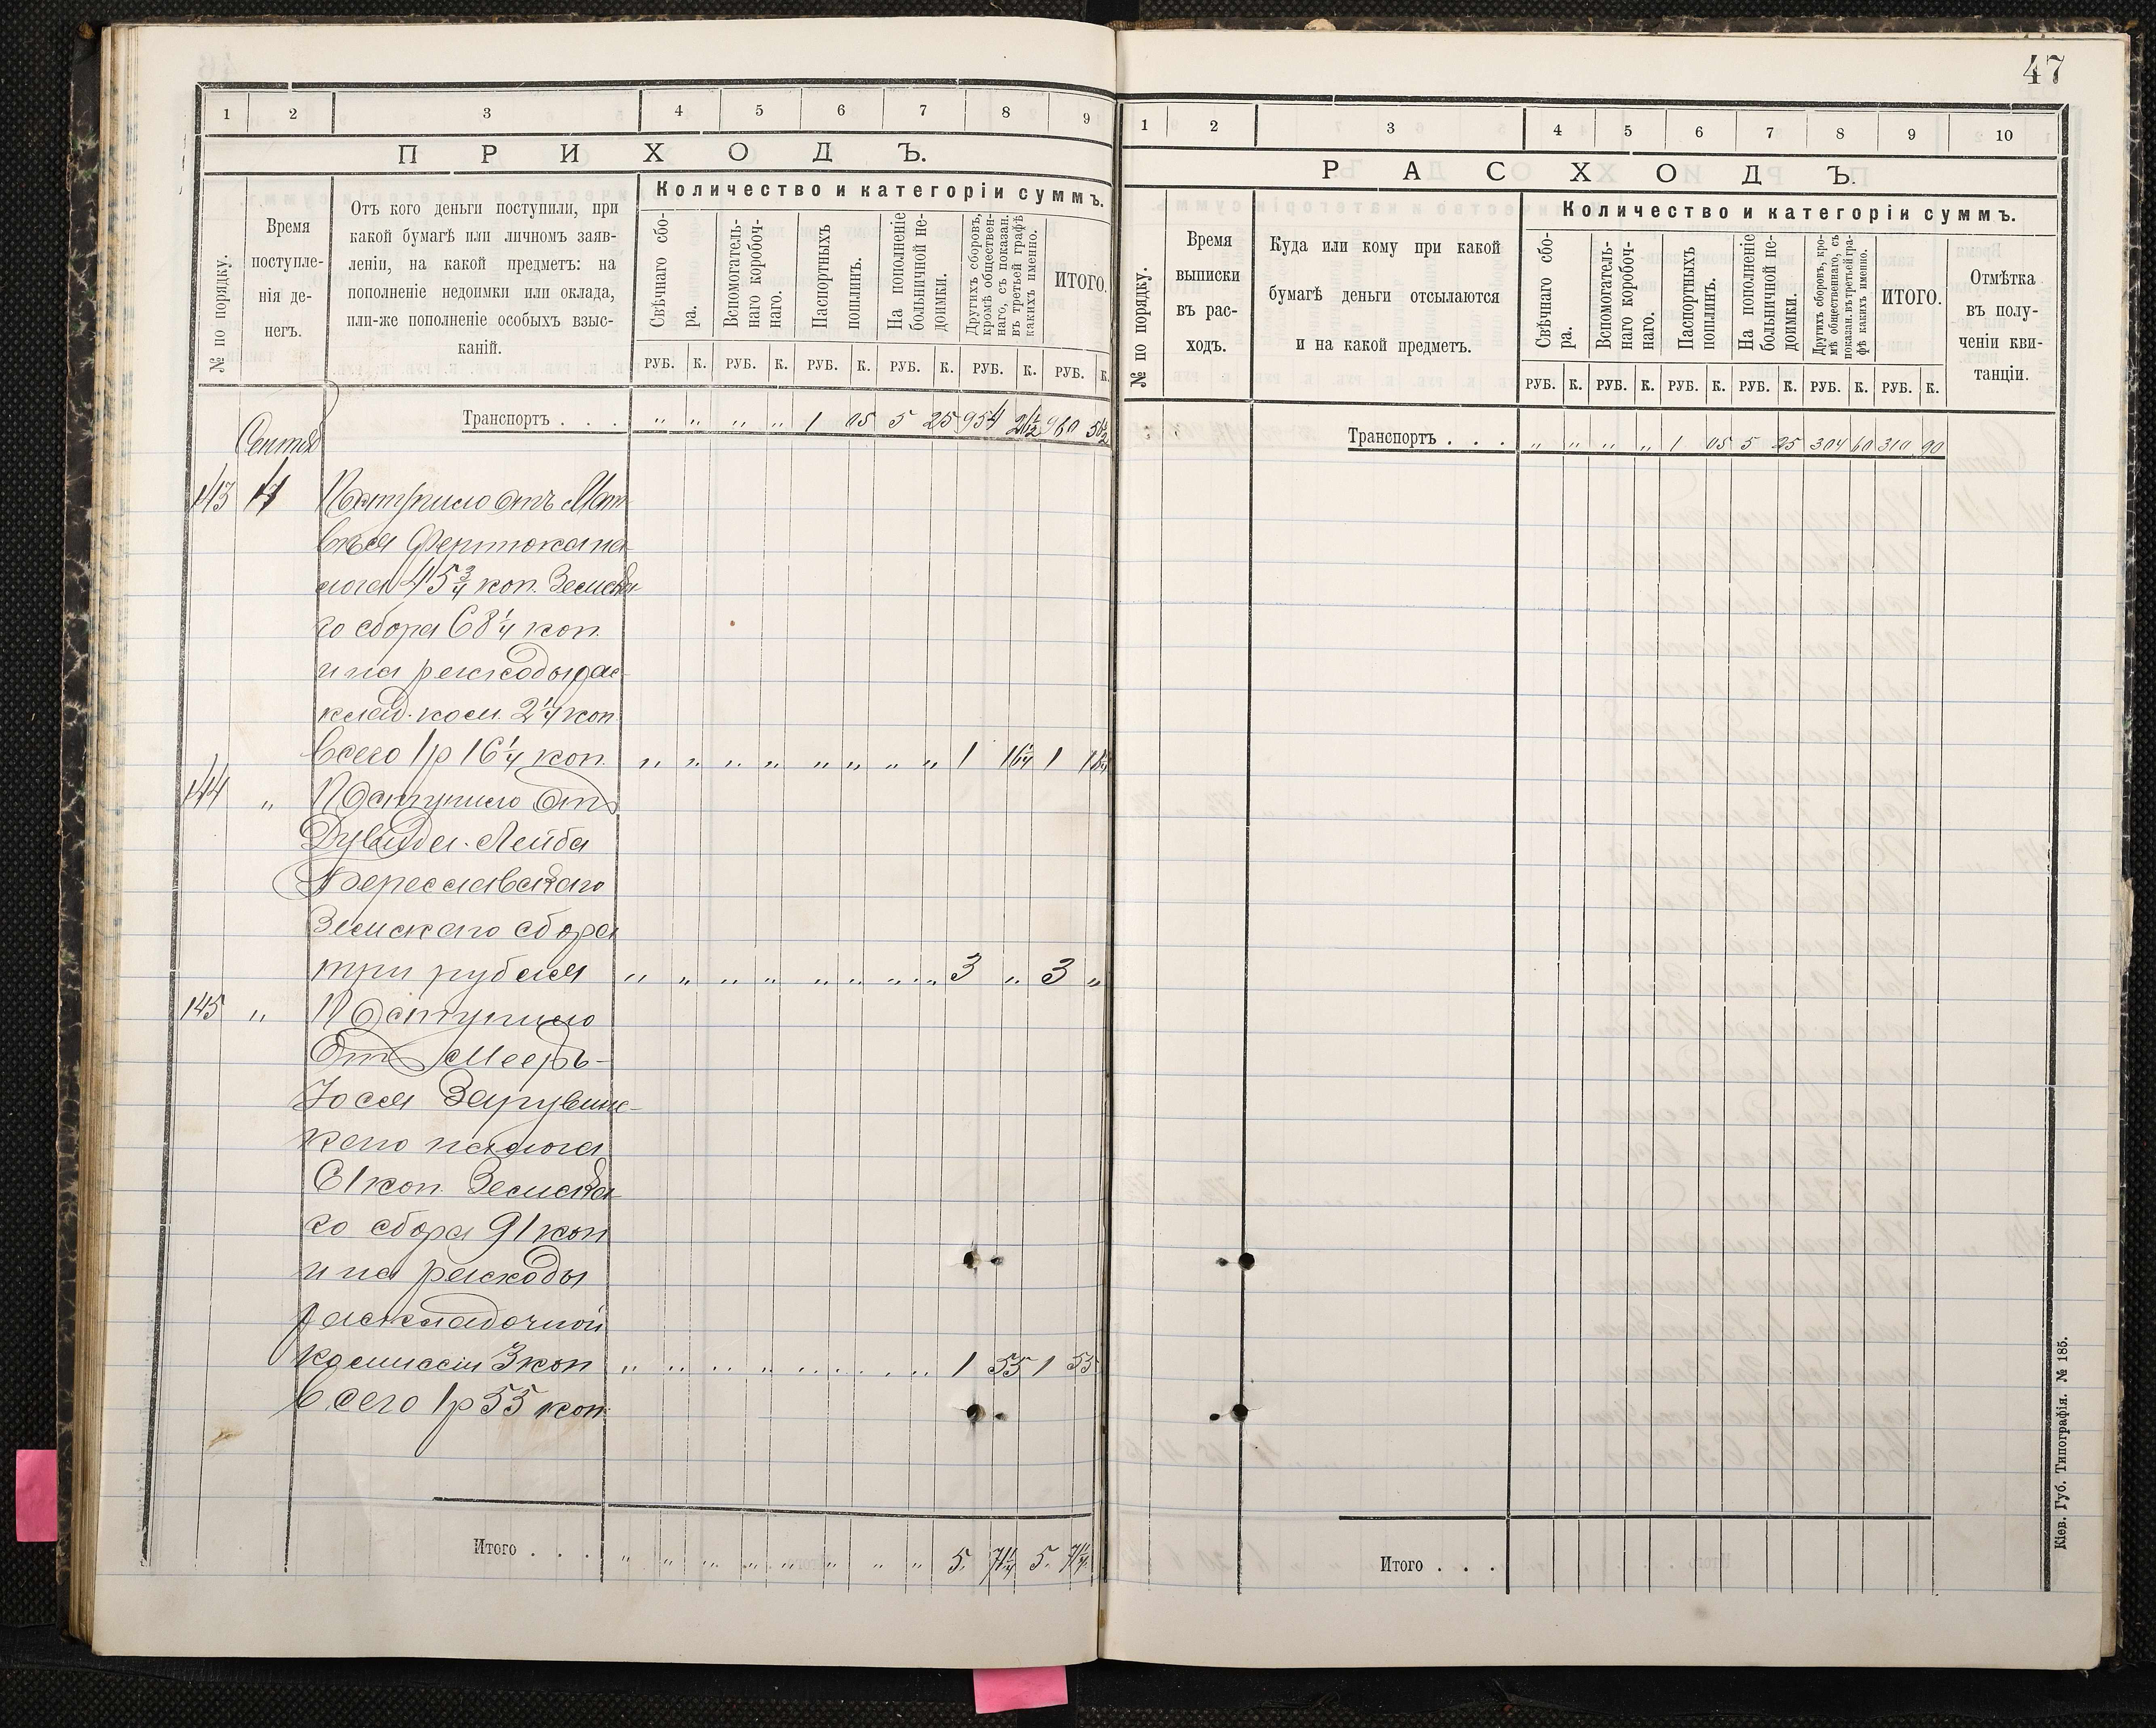 47
1 2 3 4 5 6 7 8 9
ПРИХОДЪ.
№ по порядку.
Время поступле-
нія де-
негъ.
Отъ кого деньги поступили, при
какой бумагѣ или личномъ заяв-
леніи, на какой предметъ: на
пополненіе недоимки или оклада,
или-же пополненіе особыхъ взыс-
каній.
Количество и категоріи суммъ.
Свѣчнаго сбо-
ра.
Вспомогатель-
наго коробоч-
наго.
Паспортныхъ
пошлинъ.
На пополненіе
больничной не-
доимки.
Другихъ сборовъ,
кромѣ обществен-
наго, съ показан.
въ третьей графѣ
какихъ именно.
ИТОГО.
РУБ. К. РУБ. К. РУБ. К. РУБ. К. РУБ. К. РУБ. К.
Транспортъ . . . „ „ „ „ 1 05 5 25 954
143 17 Поступило отъ Мат-
вѣя
лога 45 3/4 коп. Земска-
го сбора 68 1/4 коп.
и на расходы рас-
клад. ком. 2 1/4 коп.
Всего 1р 16 1/4 коп. „ „ „ „ „ „ „ „ 1 16 1/4 1
144 „ Поступило отъ
Дувида-Лейба
Переславскаго
Земскаго сбора
три рубля „ „ „ „ „ „ „ „ 3 „ 3 „
145 „ Поступило
Отъ Мееръ-
Іося Зарувинс-
каго налога
61 коп. Земска-
го сбора 91 коп
и на расходы
раскладочной
комиссіи 3 коп „ „ „ „ „ „ „ „ 1 55 1 55
Всего 1р 55 коп.
Итого . . . „ „ „ „ „ „ „ „ 5. 71 1/4 5. 71 1/4
1 2 3 4 5 6 7 8 9 10
РАСХОДЪ.
№ по порядку.
Время
выписки
въ рас-
ходъ.
Куда или кому при какой
бумагѣ деньги отсылаются
и на какой предметъ.
Количество и категоріи суммъ.
Свѣчнаго сбо-
ра.
Вспомогатель-
наго коробоч-
наго.
Паспортныхъ
пошлинъ.
На пополненіе
больничной не-
доимки.
Другихъ сборовъ, кро-
мѣ общественнаго, съ
показан. въ третьей гра-
фѣ какихъ именно.
ИТОГО.
Отмѣтка
въ полу-
ченіи кви-
танціи.
РУБ. К. РУБ. К. РУБ. К. РУБ. К. РУБ. К. РУБ. К.
Транспортъ . . . „ „ „ „ 1 05 5 25 304 60 310 90
Итого . . .
Кіев. Губ. Типографія. № 185.